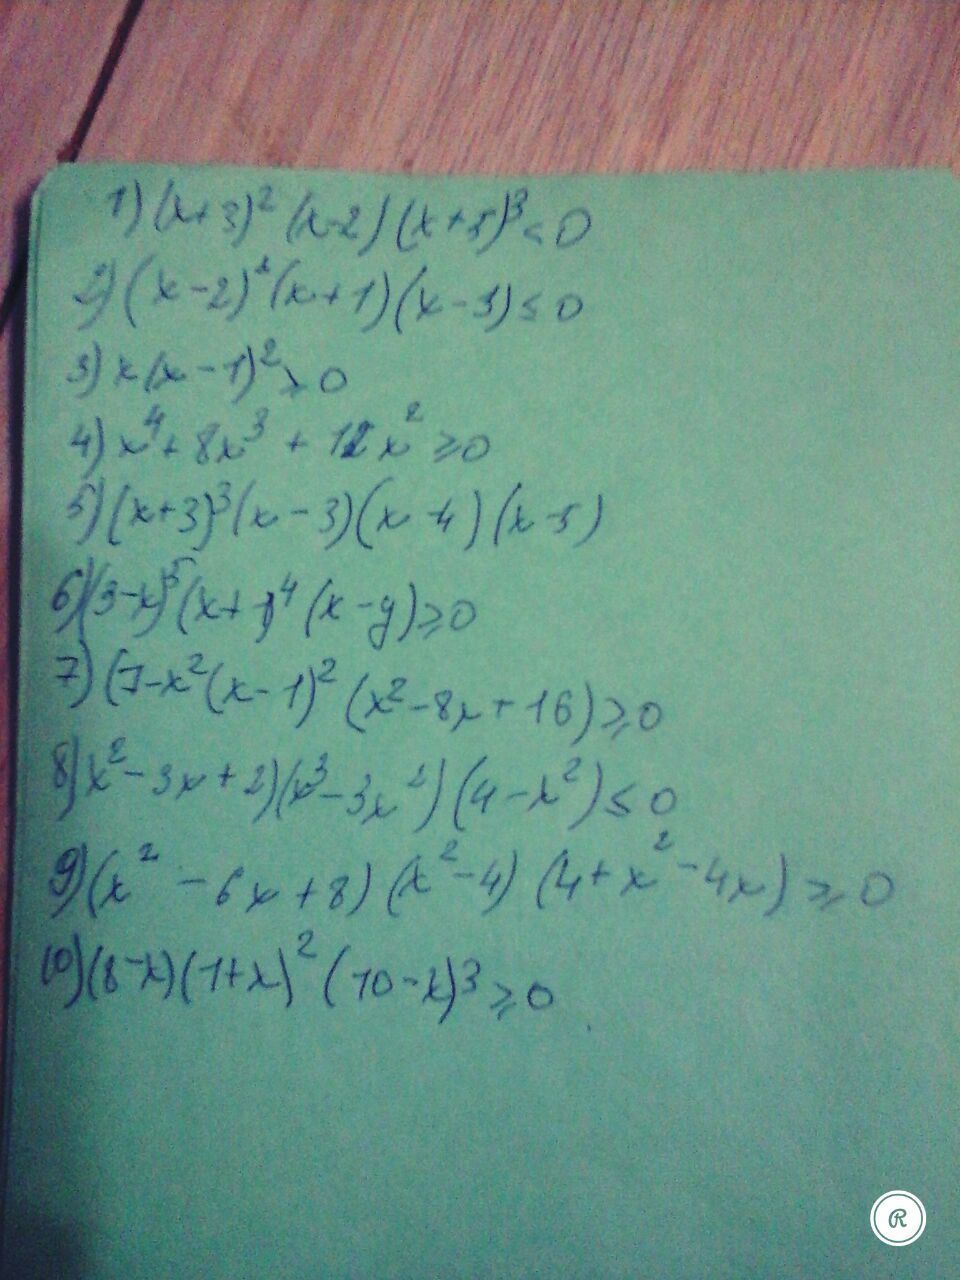 1) (x+3)² (x-2) (x+5)³ < 0
2) (x-2)² (x+1) (x-3) ≤ 0
3) x(x-1)² > 0
4) x⁴ + 8x³ + 12x² ≥ 0
5) (x+3)³ (x-3) (x-4) (x-5)
6) (3-x)⁵ (x+1)⁴ (x-y) ≥ 0
7) (7-x² (x-1)² (x²-8x+16) ≥ 0
8) x²-3x+2) (x³-3x²) (4-x²) ≤ 0
9) (x²-6x+8) (x²-4) (4+x²-4x) ≥ 0
10) (8-x) (1+x)² (10-x)³ ≥ 0
R